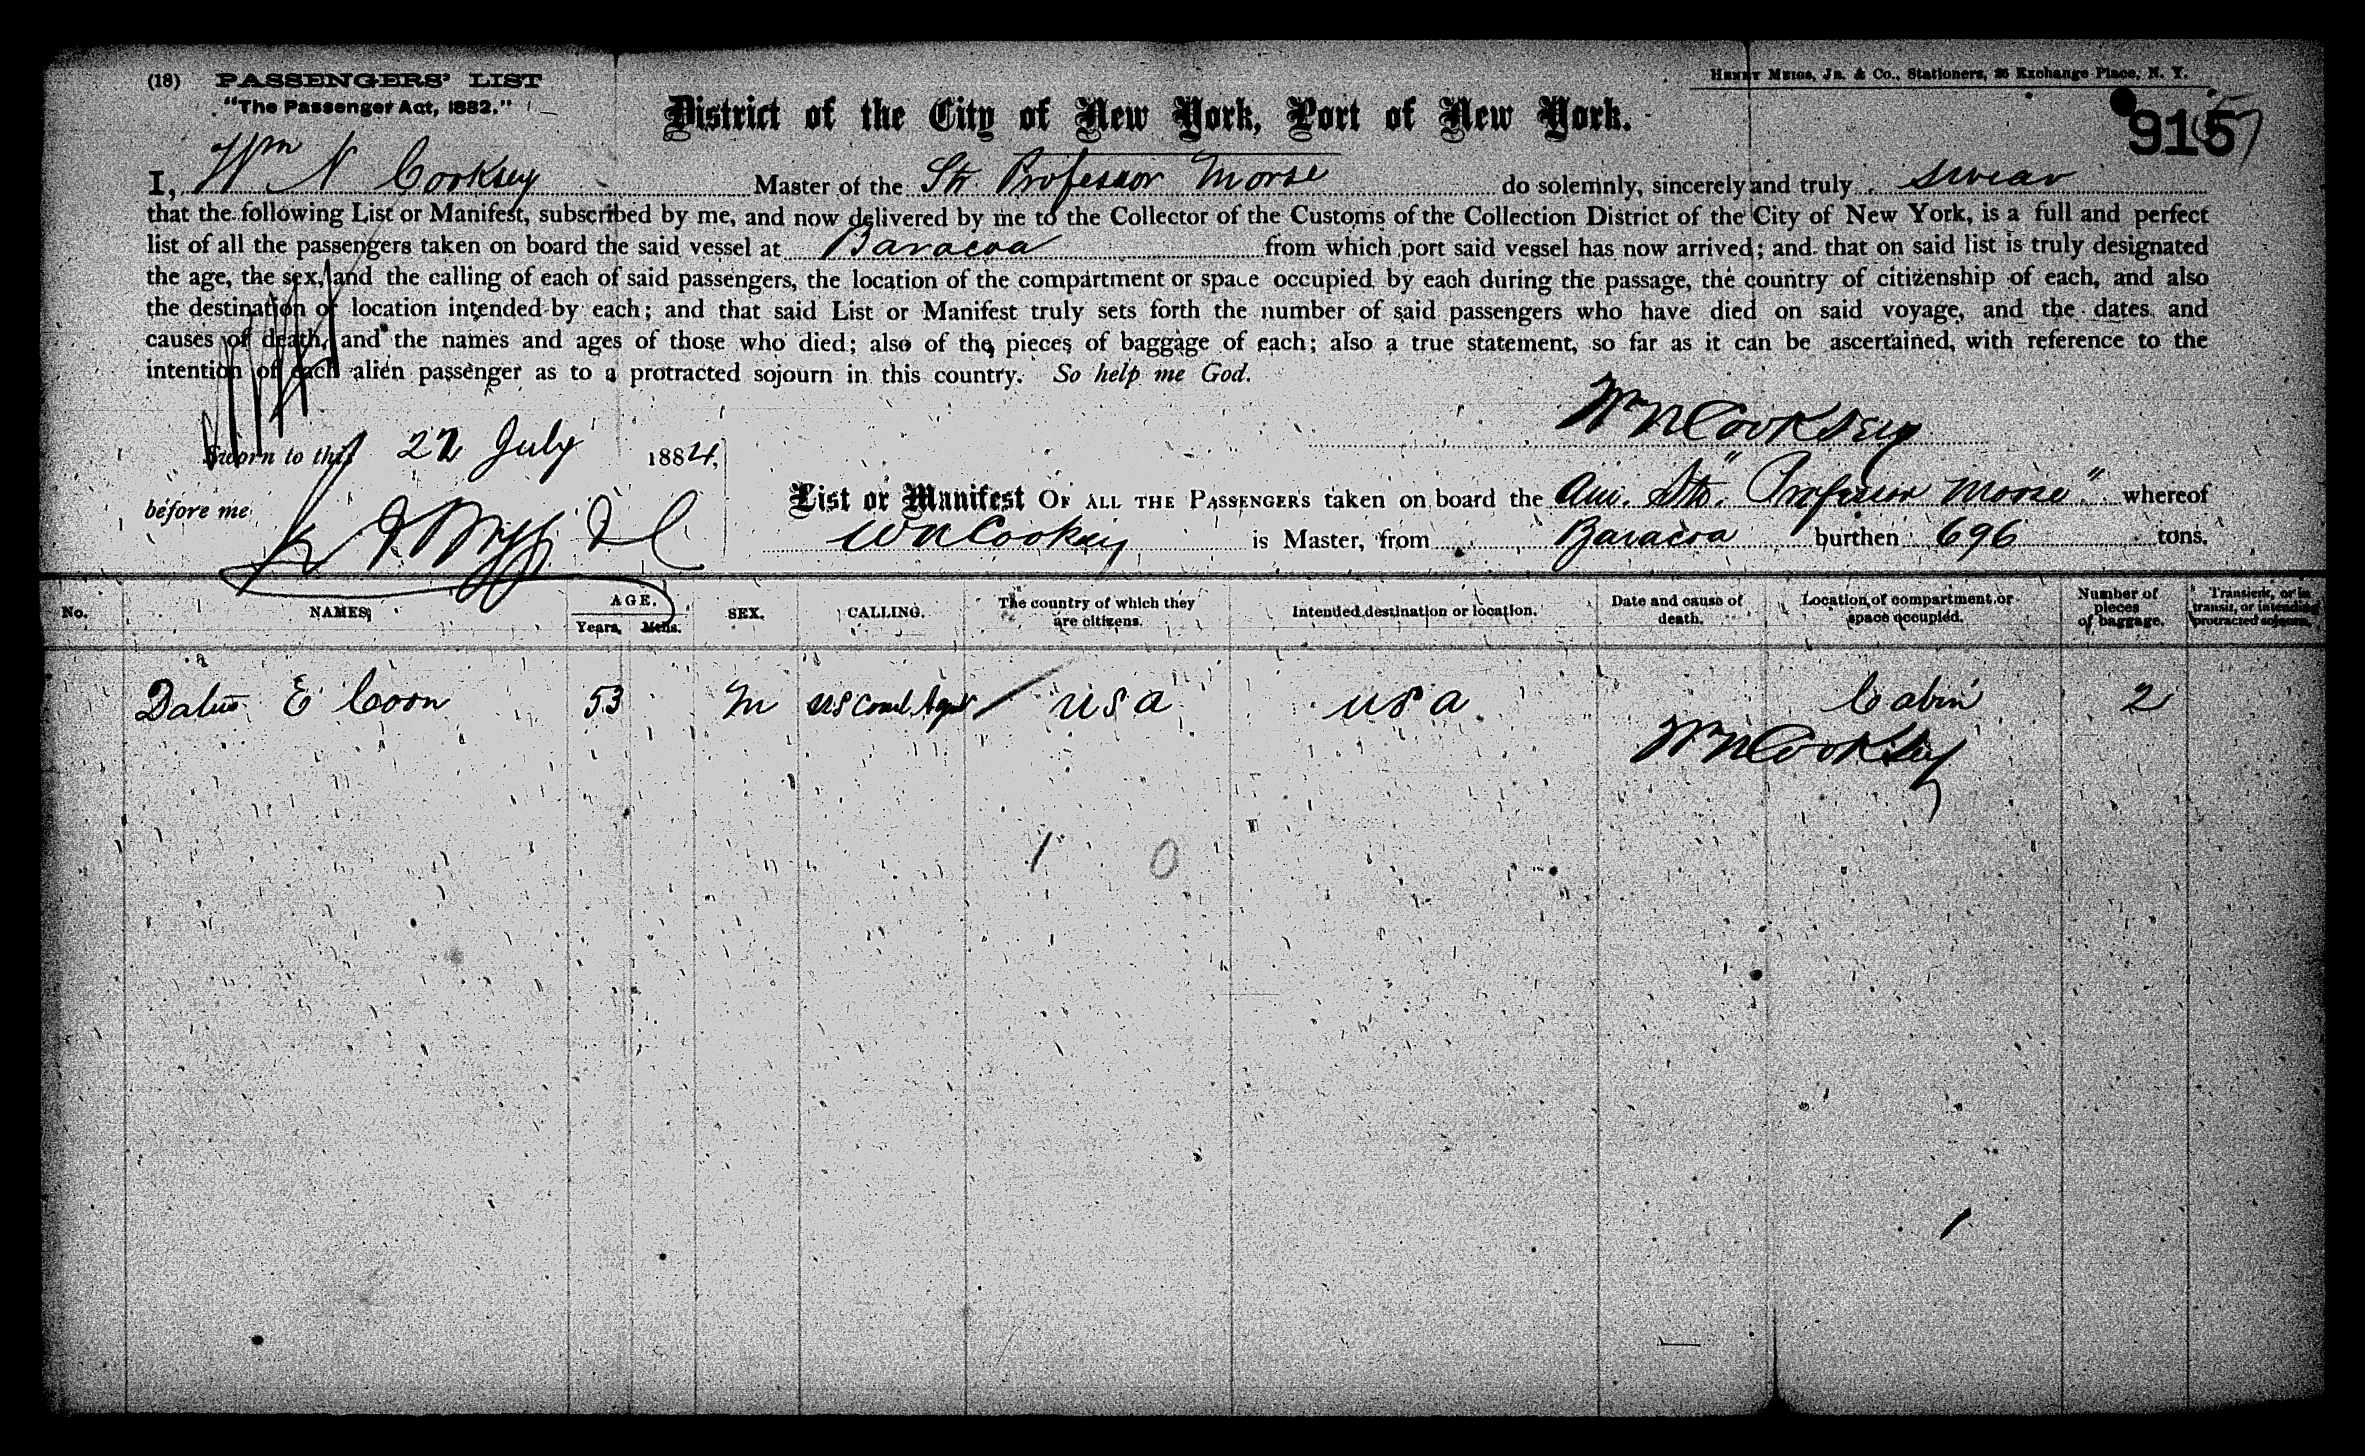 (18) PASSENGERS' LIST
"The Passenger Act, 1882."
HENRY MEIGS, JR. & Co., Stationers, 26 Exchange Place, N. Y.
District of the City of New York, Port of New York.
915
I, Wm N Cooksey Master of the Str. Professor Morse do solemnly, sincerely and truly swear
that the following List or Manifest, subscribed by me, and now delivered by me to the Collector of the Customs of the Collection District of the City of New York, is a full and perfect
list of all the passengers taken on board the said vessel at Baracoa from which port said vessel has now arrived; and that on said list is truly designated
the age, the sex, and the calling of each of said passengers, the location of the compartment or space occupied by each during the passage, the country of citizenship of each, and also
the destination or location intended by each; and that said List or Manifest truly sets forth the number of said passengers who have died on said voyage, and the dates and
causes of death, and the names and ages of those who died; also of the pieces of baggage of each; also a true statement, so far as it can be ascertained, with reference to the
intention of each alien passenger as to a protracted sojourn in this country. So help me God.
Wm N Cooksey
Sworn to this 22 July 1884,
before me
List or Manifest OF ALL THE PASSENGERS taken on board the Am. Str. "Professor Morse" whereof
Wm N Cooksey is Master, from Baracoa burthen 696 tons.
No. NAMES. AGE. Years. Mths. SEX. CALLING. The country of which they are citizens. Intended destination or location. Date and cause of death. Location of compartment or space occupied. Number of pieces of baggage. Transient, or in transit, or intending protracted sojourn.
E Coon 53 M U S A U S A Cabin 2
Wm N Cooksey
1 0
1